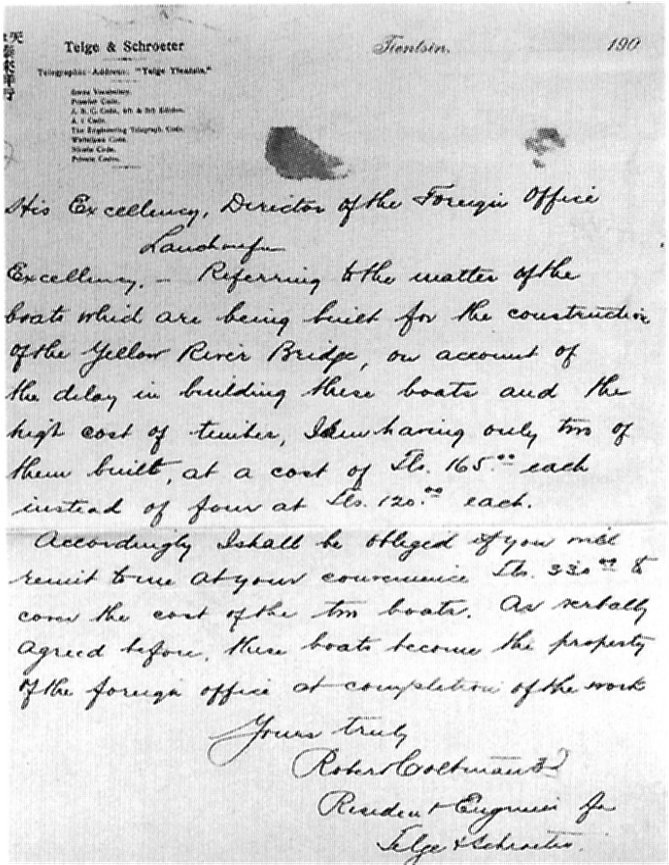 天
泰來洋行
Telge & Schroeter
Telegraphic Address: "Telge Tientsin."
Premier Code.
A. B. C. Code, 4th & 5th Edition.
A. 1 Code.
The Engineering Telegraph Code.
Private Codes.
Tientsin. 190
His Excellency, Director of the Foreign Office
Lanchoufu
Excellency. — Referring to the matter of the
boats which are being built for the construction
of the Yellow River Bridge, on account of
the delay in building these boats and the
high cost of timber, I am having only two of
them built, at a cost of Tls. 165.00 each
instead of four at Tls. 120.00 each.
Accordingly I shall be obliged if you will
remit to me at your convenience Tls. 330.00 to
cover the cost of the two boats. As verbally
agreed before, these boats become the property
of the foreign office at completion of the work
Yours truly
Robert Coltman 3d
Resident Engineer for
Telge & Schroeter.